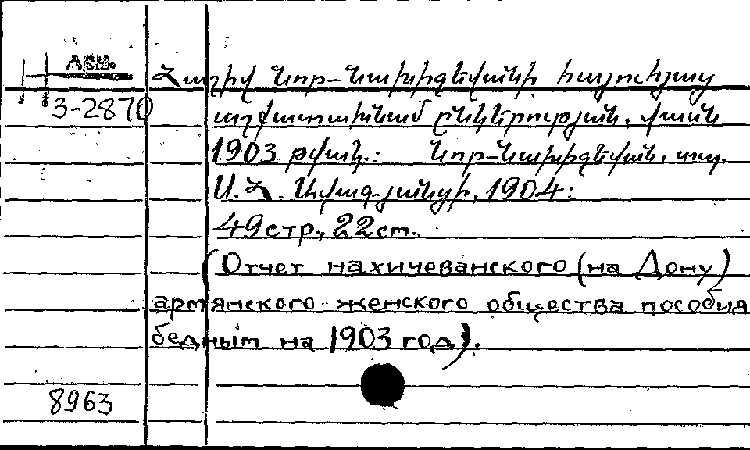 АСШ.
Հաշիվ Նոր-Նախիջեվանի հայուհյաց
3-2870
աղքատախնամ ընկերության. ֆասն
1903 թվակ.: Նոր-Նախիջեվան, տպ.
Ս. Հ. Ավագյանցի, 1904:
49стр., 22ст.
(Отчет нахичеванского (на Дону)
армянского женского общества пособия
бедным на 1903 год).
8963